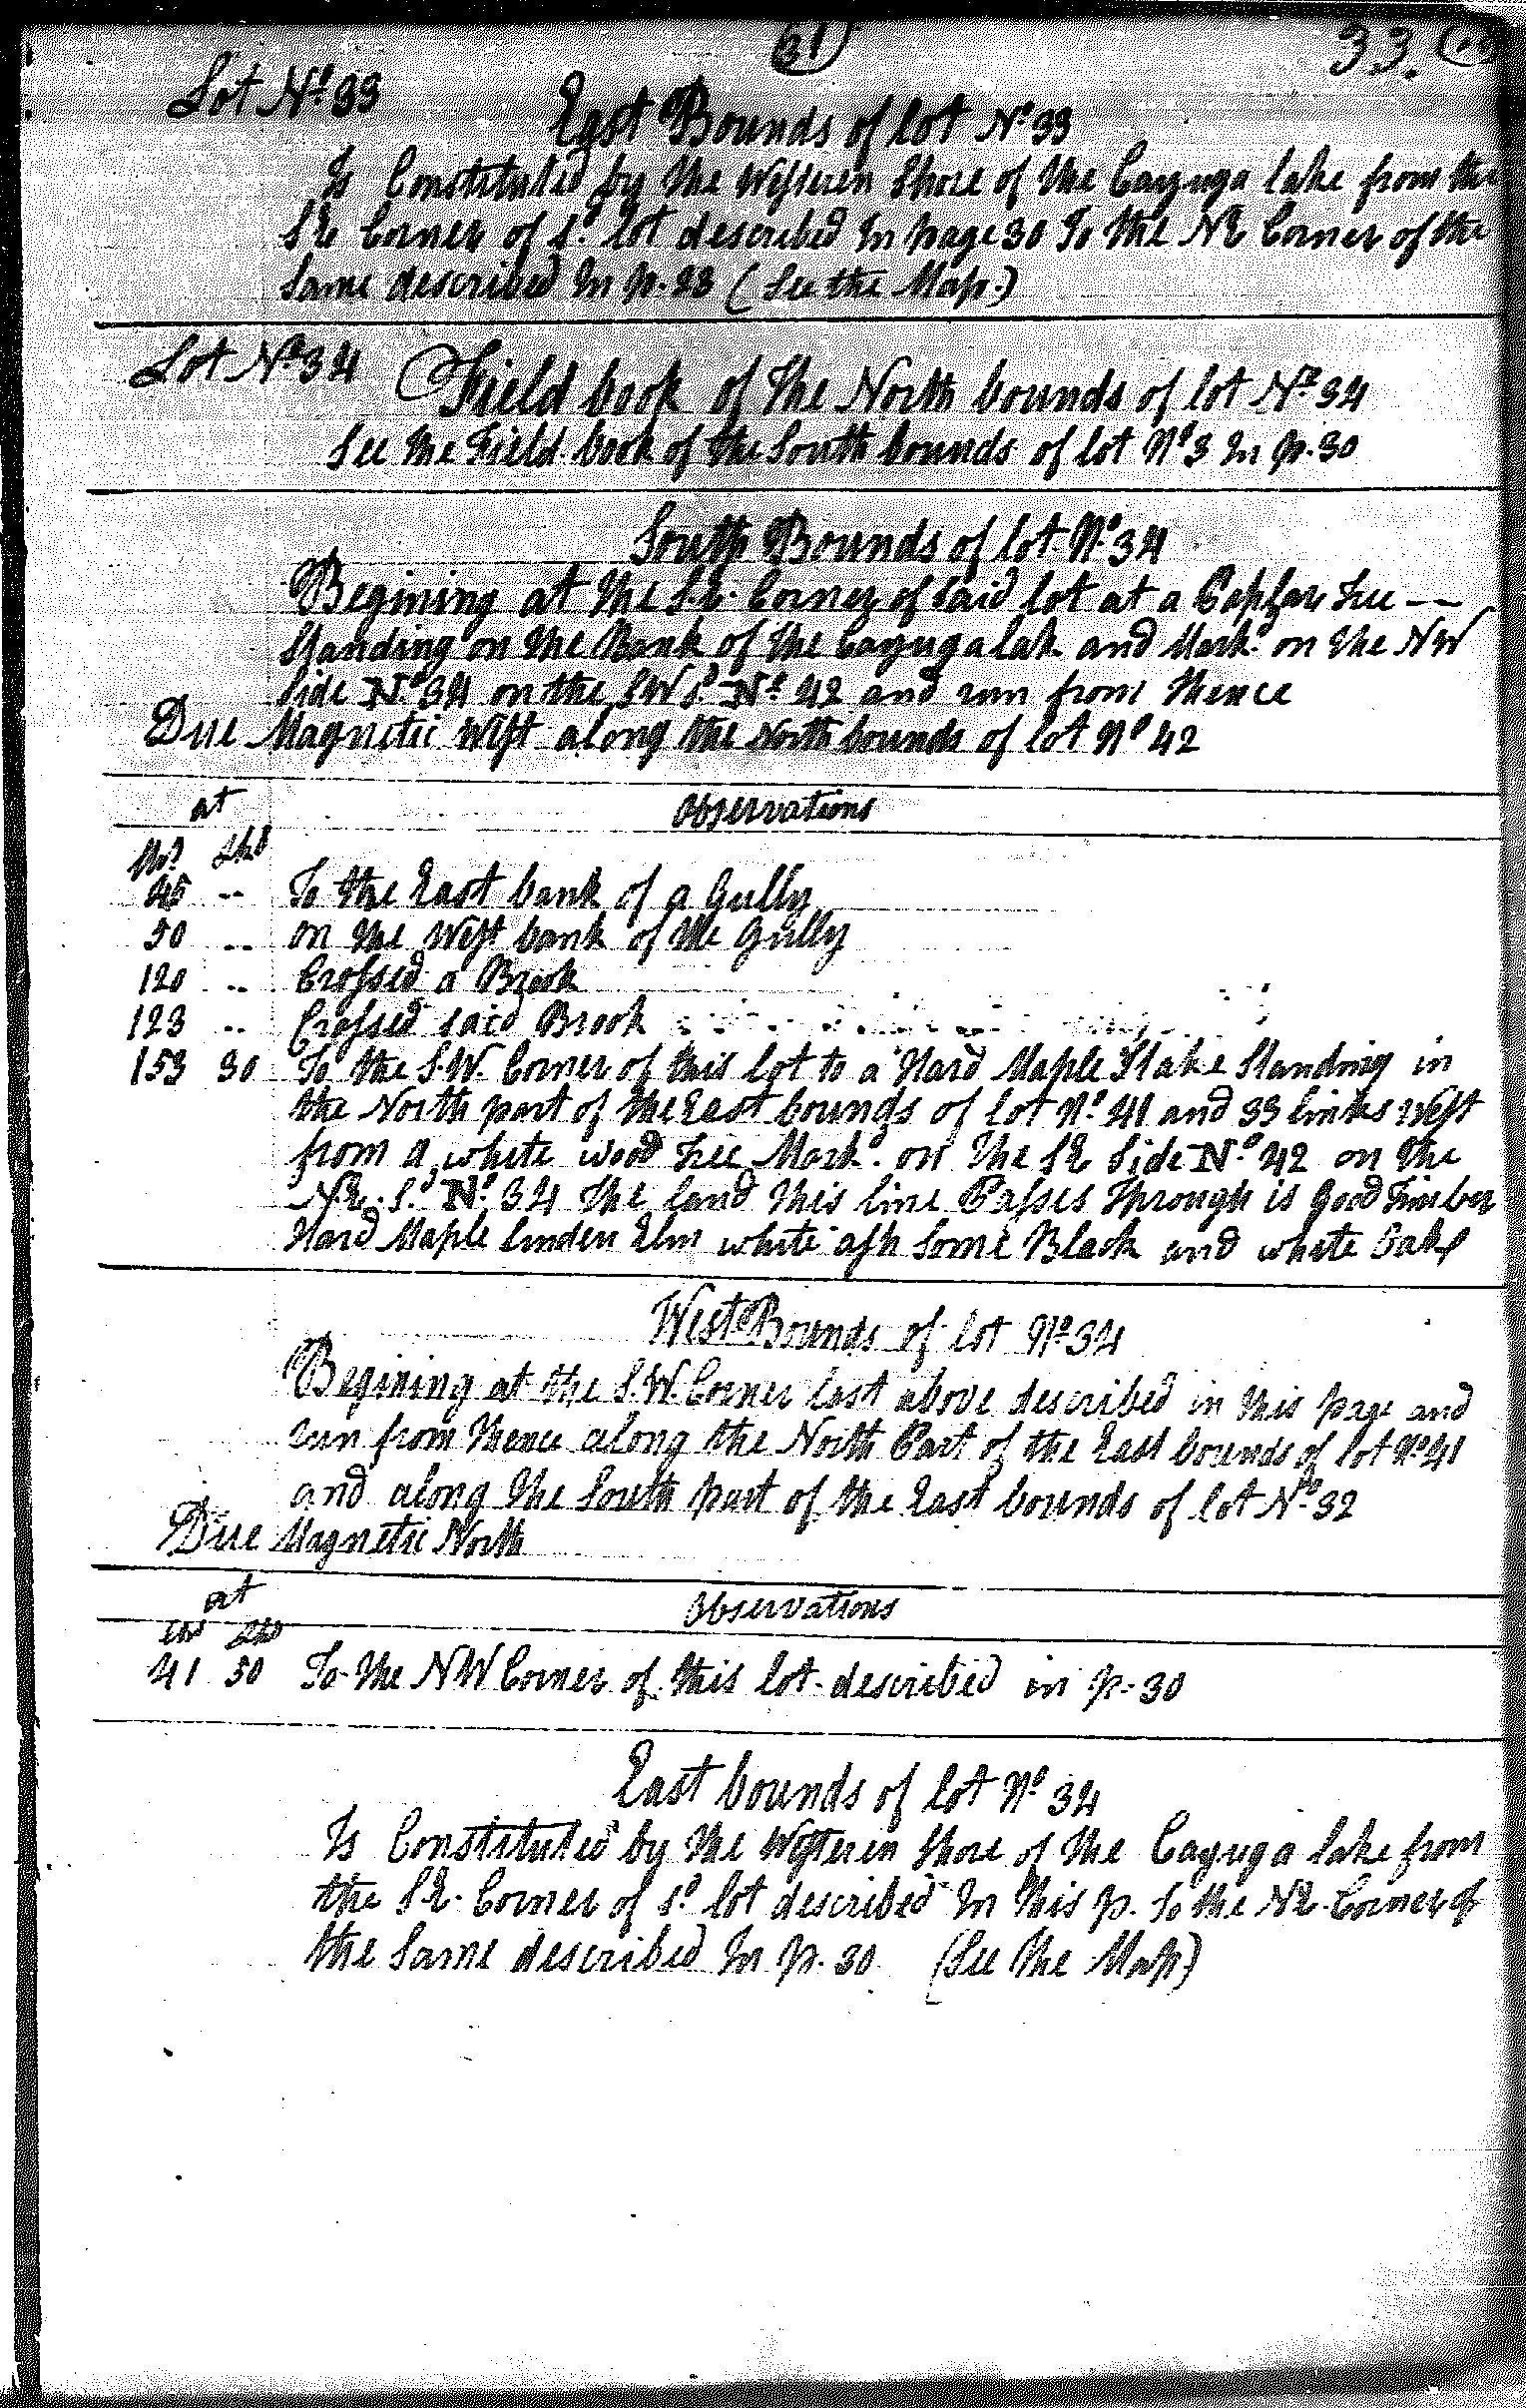 31
33.
Lot Nº 33
East Bounds of lot Nº 33
Is Constituted by the Westeren Shore of the Cayuga lake from the
SE Corner of sd. lot described In page 30 To the NE Corner of the
Same described In p. 28 (See the Map.)
Lot Nº 34
Field book of the North bounds of lot Nº 34
See the Field book of the South bounds of lot Nº 3 In p. 30
South Bounds of lot Nº 34
Begining at the S.E. Corner of said lot at a Tree --
Standing on the Bank of the Cayuga lak and Markd. on the NW
Side Nº 34 on the SW sd. Nº 42 and run from thence
Due Magnetic West along the North bounds of lot Nº 42
at
Observations
Lks
45 -- To the East bank of a Gully
50 -- on the West bank of the Gully
120 -- Crossed a Brook
123 -- Crossed said Brook
153 30 To the S.W. Corner of this lot to a Hard Maple Stake Standing in
the North part of the East bounds of lot Nº 41 and 33 links West
from a white wood Tree Markd. on the SE Side Nº 42 on the
N.E. Sd. Nº 34 The land this line Passes through is Good Timber
Hard Maple linden Elm white ash Some Black and white Oak
West Bounds of lot Nº 34
Begining at the S.W. Corner last above described in this page and
run from thence along the North Part of the East bounds of lot Nº 41
and along the South part of the East bounds of lot Nº 32
Due Magnetic North
at
Observations
Chs Lks
41 50 To the NW Corner of this lot described in p. 30
East bounds of lot Nº 34
Is Constituted by the Westeren Shore of the Cayuga lake from
the S.E. Corner of sd. lot described In this p. To the N.E. Corner of
the Same described In p. 30 (See the Map)